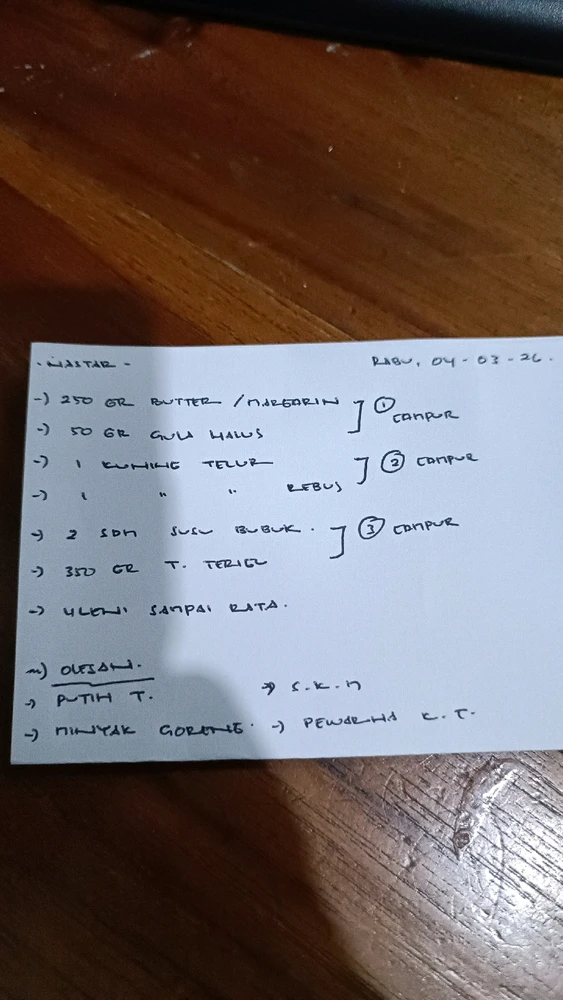 - NASTAR - RABU, 04-03-26.
-) 250 GR BUTTER / MARGARIN ] ① CAMPUR
-) 50 GR GULA HALUS
-) 1 KUNING TELUR ] ② CAMPUR
-) 1 " " REBUS
-) 2 SDM SUSU BUBUK. ] ③ CAMPUR
-) 350 GR T. TERIGU
-) ULENI SAMPAI RATA.
) OLESAN.
-) PUTIH T. -) S.K.M
-) MINYAK GORENG. -) PEWARNA K.T.